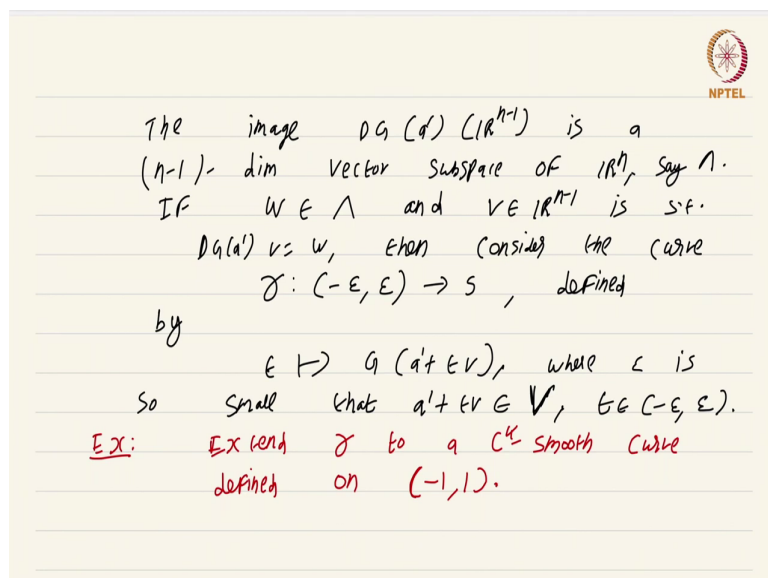 NPTEL
The image DG (a') (ℝⁿ⁻¹) is a
(n-1)- dim vector subspace of ℝⁿ, say Λ.
IF W ∈ Λ and V ∈ ℝⁿ⁻¹ is s.t.
DG(a') v = w, then consider the curve
γ : (-ε, ε) → S , defined
by
t ↦ G (a'+ tv), where ε is
So small that a'+ tv ∈ V, t ∈ (-ε, ε).
Ex: Extend γ to a Cᵏ- smooth curve
defined on (-1,1).